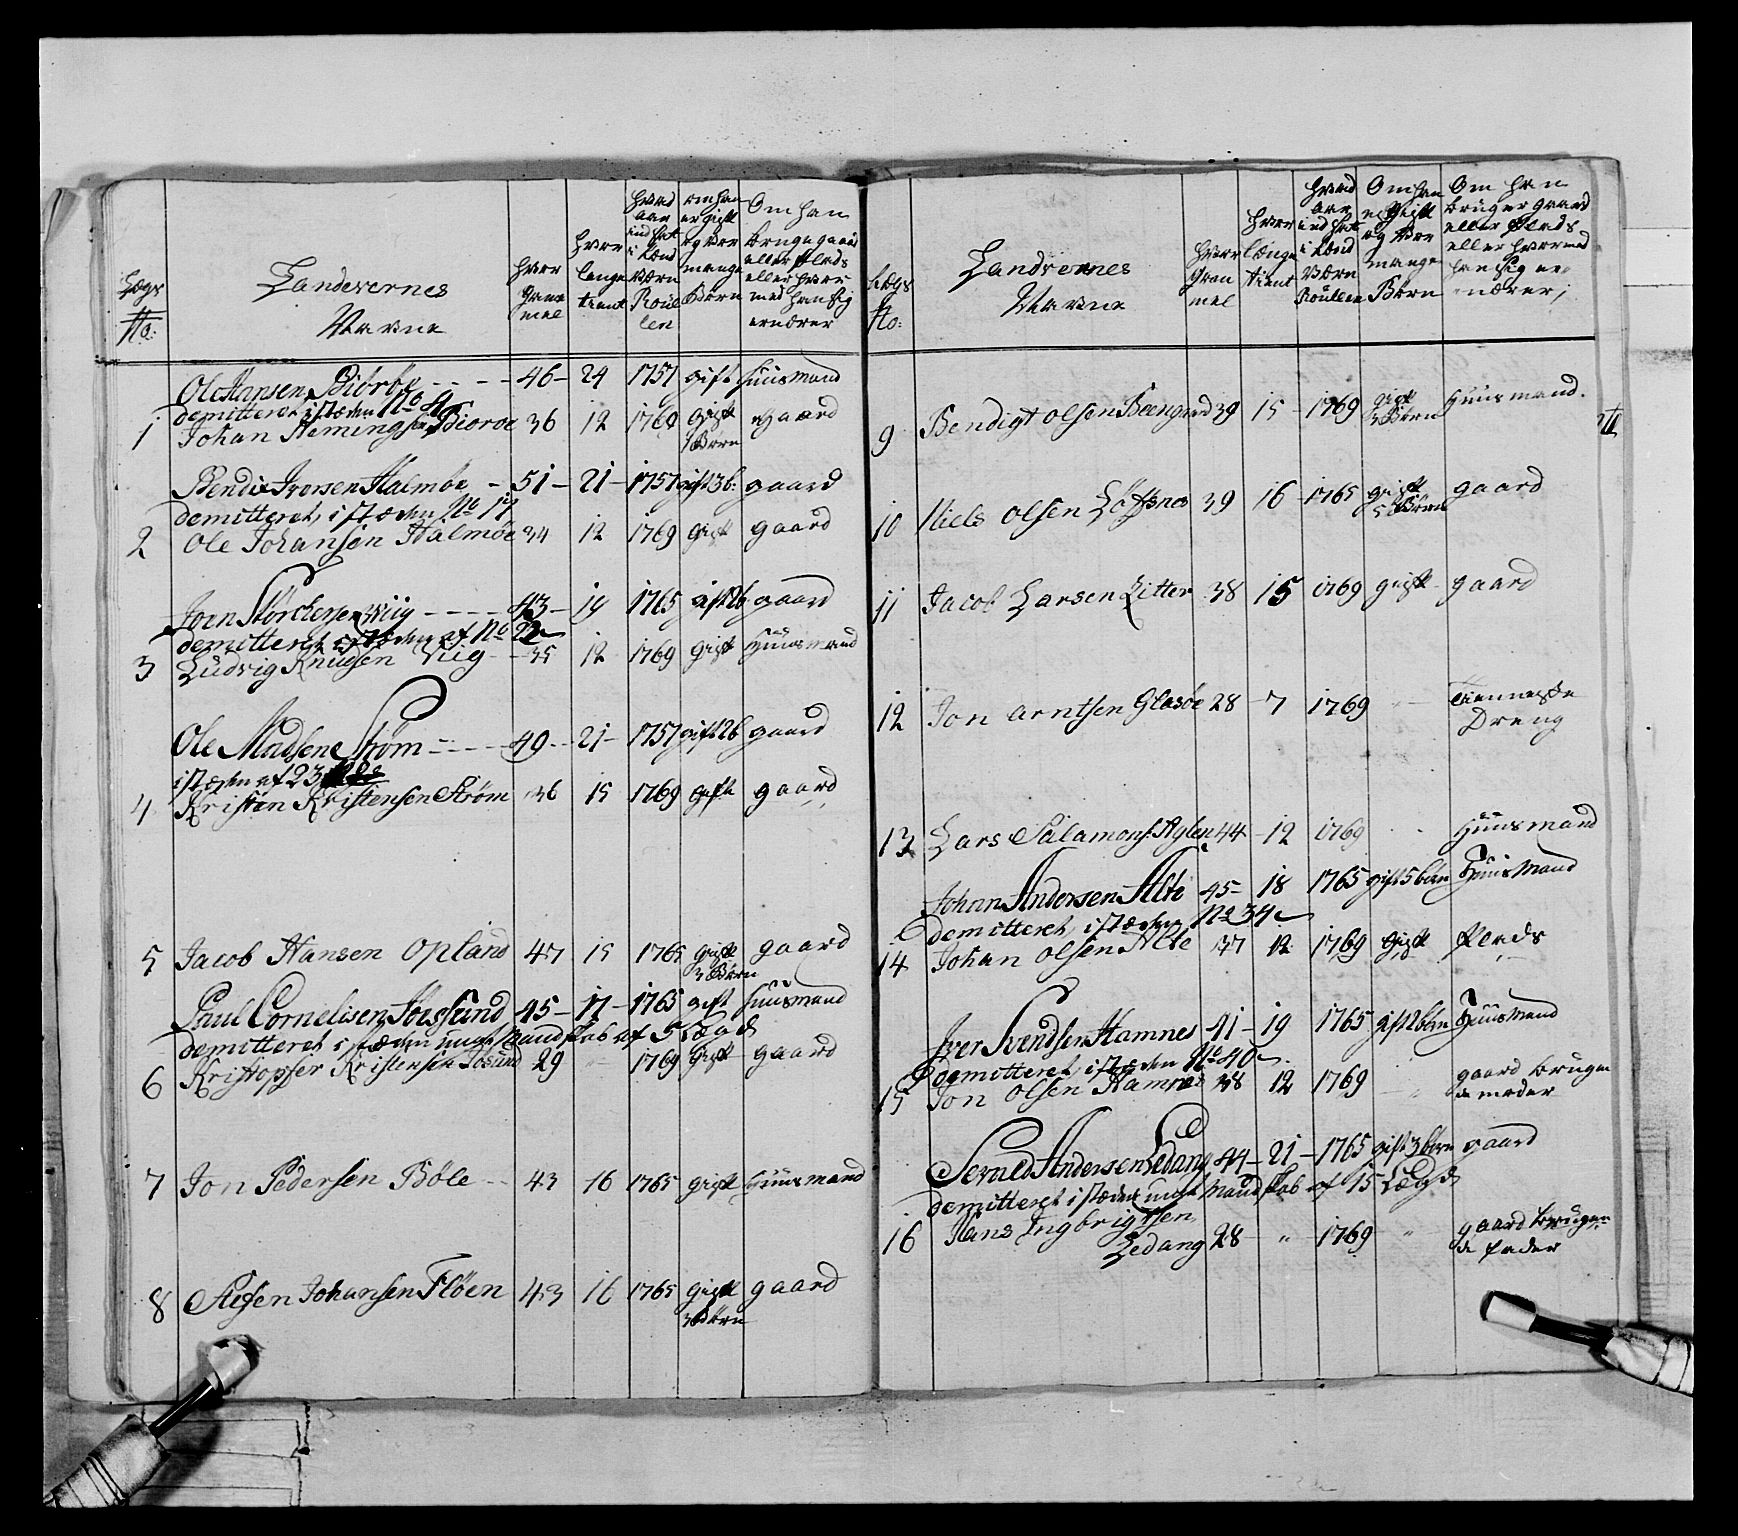 Lægs No:
Landevernes Navne
hvor gammel
hvor lenge tient
hvad aar indsat i Land Værn Roullen
om han er gift og hvor mange Børn
Om han bruge gaard eller Plads eller hvormed han sig ernærer
Ole Hansen Biörbe - - - - 46 - 24 1757 gift huusmand
demitteret istæden No 4
1 Johan Hemingsen Bioröe 36 12 1769 gift 1 Børn gaard
Bendix Iversen Halmöe - 51 - 21 - 1757 gift 3b: gaard
demitteret, istæden No 17
2 Ole Johansen Halmöe 34 12 1769 gift gaard
Jørn Storchersen Wiig - - - - 43 - 19 1765 gift 2b gaard
demitteret istæden af No 22
3 Ludvig Knudsen Viig - - 35 12 1769 gift Huusmand
Ole Madsen Strøm - - - - 49 - - 21 - 1757 gift 2b gaard
istæden af 23
4 Kristen Kristensen Strøm 36 15 1769 gift gaard
5 Jacob Hansen Opland 47 15 1765 gift 3 Børn gaard
Paul Cornelisen Sossund 45 - 17 - 1765 gift huusmand
demitteret istæden unge Mandskab af 5 Lægd
6 Kristopfer Kristensen Sosund 29 " 1769 gift gaard
7 Jon Pedersen Böle - - 43 16 1765 gift Huusmand
8 Stefsen Johansen Flöen 43 16 1765 gift 3 Børn gaard
Lægs No:
Landvernes Navne
hvor gammel
hvor længe tient
hvad aar indsat i Land Værn Roullen
Om han er gift og hvor mange Børn
Om han bruger gaard eller Plads eller hvormed han sig ernærer;
9 Bendigt Olsen Beengaard 39 15 - 1769 gift 3 Børn Huusmand.
10 Niels Olsen Löfsnes 39 16 - 1765 gift 5 Børn gaard
11 Jacob Larsen Litter 38 15 1769 gift gaard
12 Jon Arntsen Glasöe 28 - 7 1769 " Tienneste Dreng
13 Lars Salamons: Aglen 44 - 12 1769 Huusmand
Johan Andersen Alte 45 - 18 1765 gift 5 børn Huusmand
demitteret, istæden No 34
14 Johan Olsen Alte 37 12 1769 gift Plads
Iver Svendsen Hamnes 41 - 19 1765 gift 2 børn Huusmand
demitteret istæden No 40
15 Jon Olsen Hamnes 38 12 1769 " gaard brugende moder
Andersen Ledang 44 - 21 - 1765 gift 3 børn gaard
demitteret istæden unge Mandskab af 15 Lægd
16 Hans Ingbrigtsen Ledang 28 " 1769 " gaard brugende fader